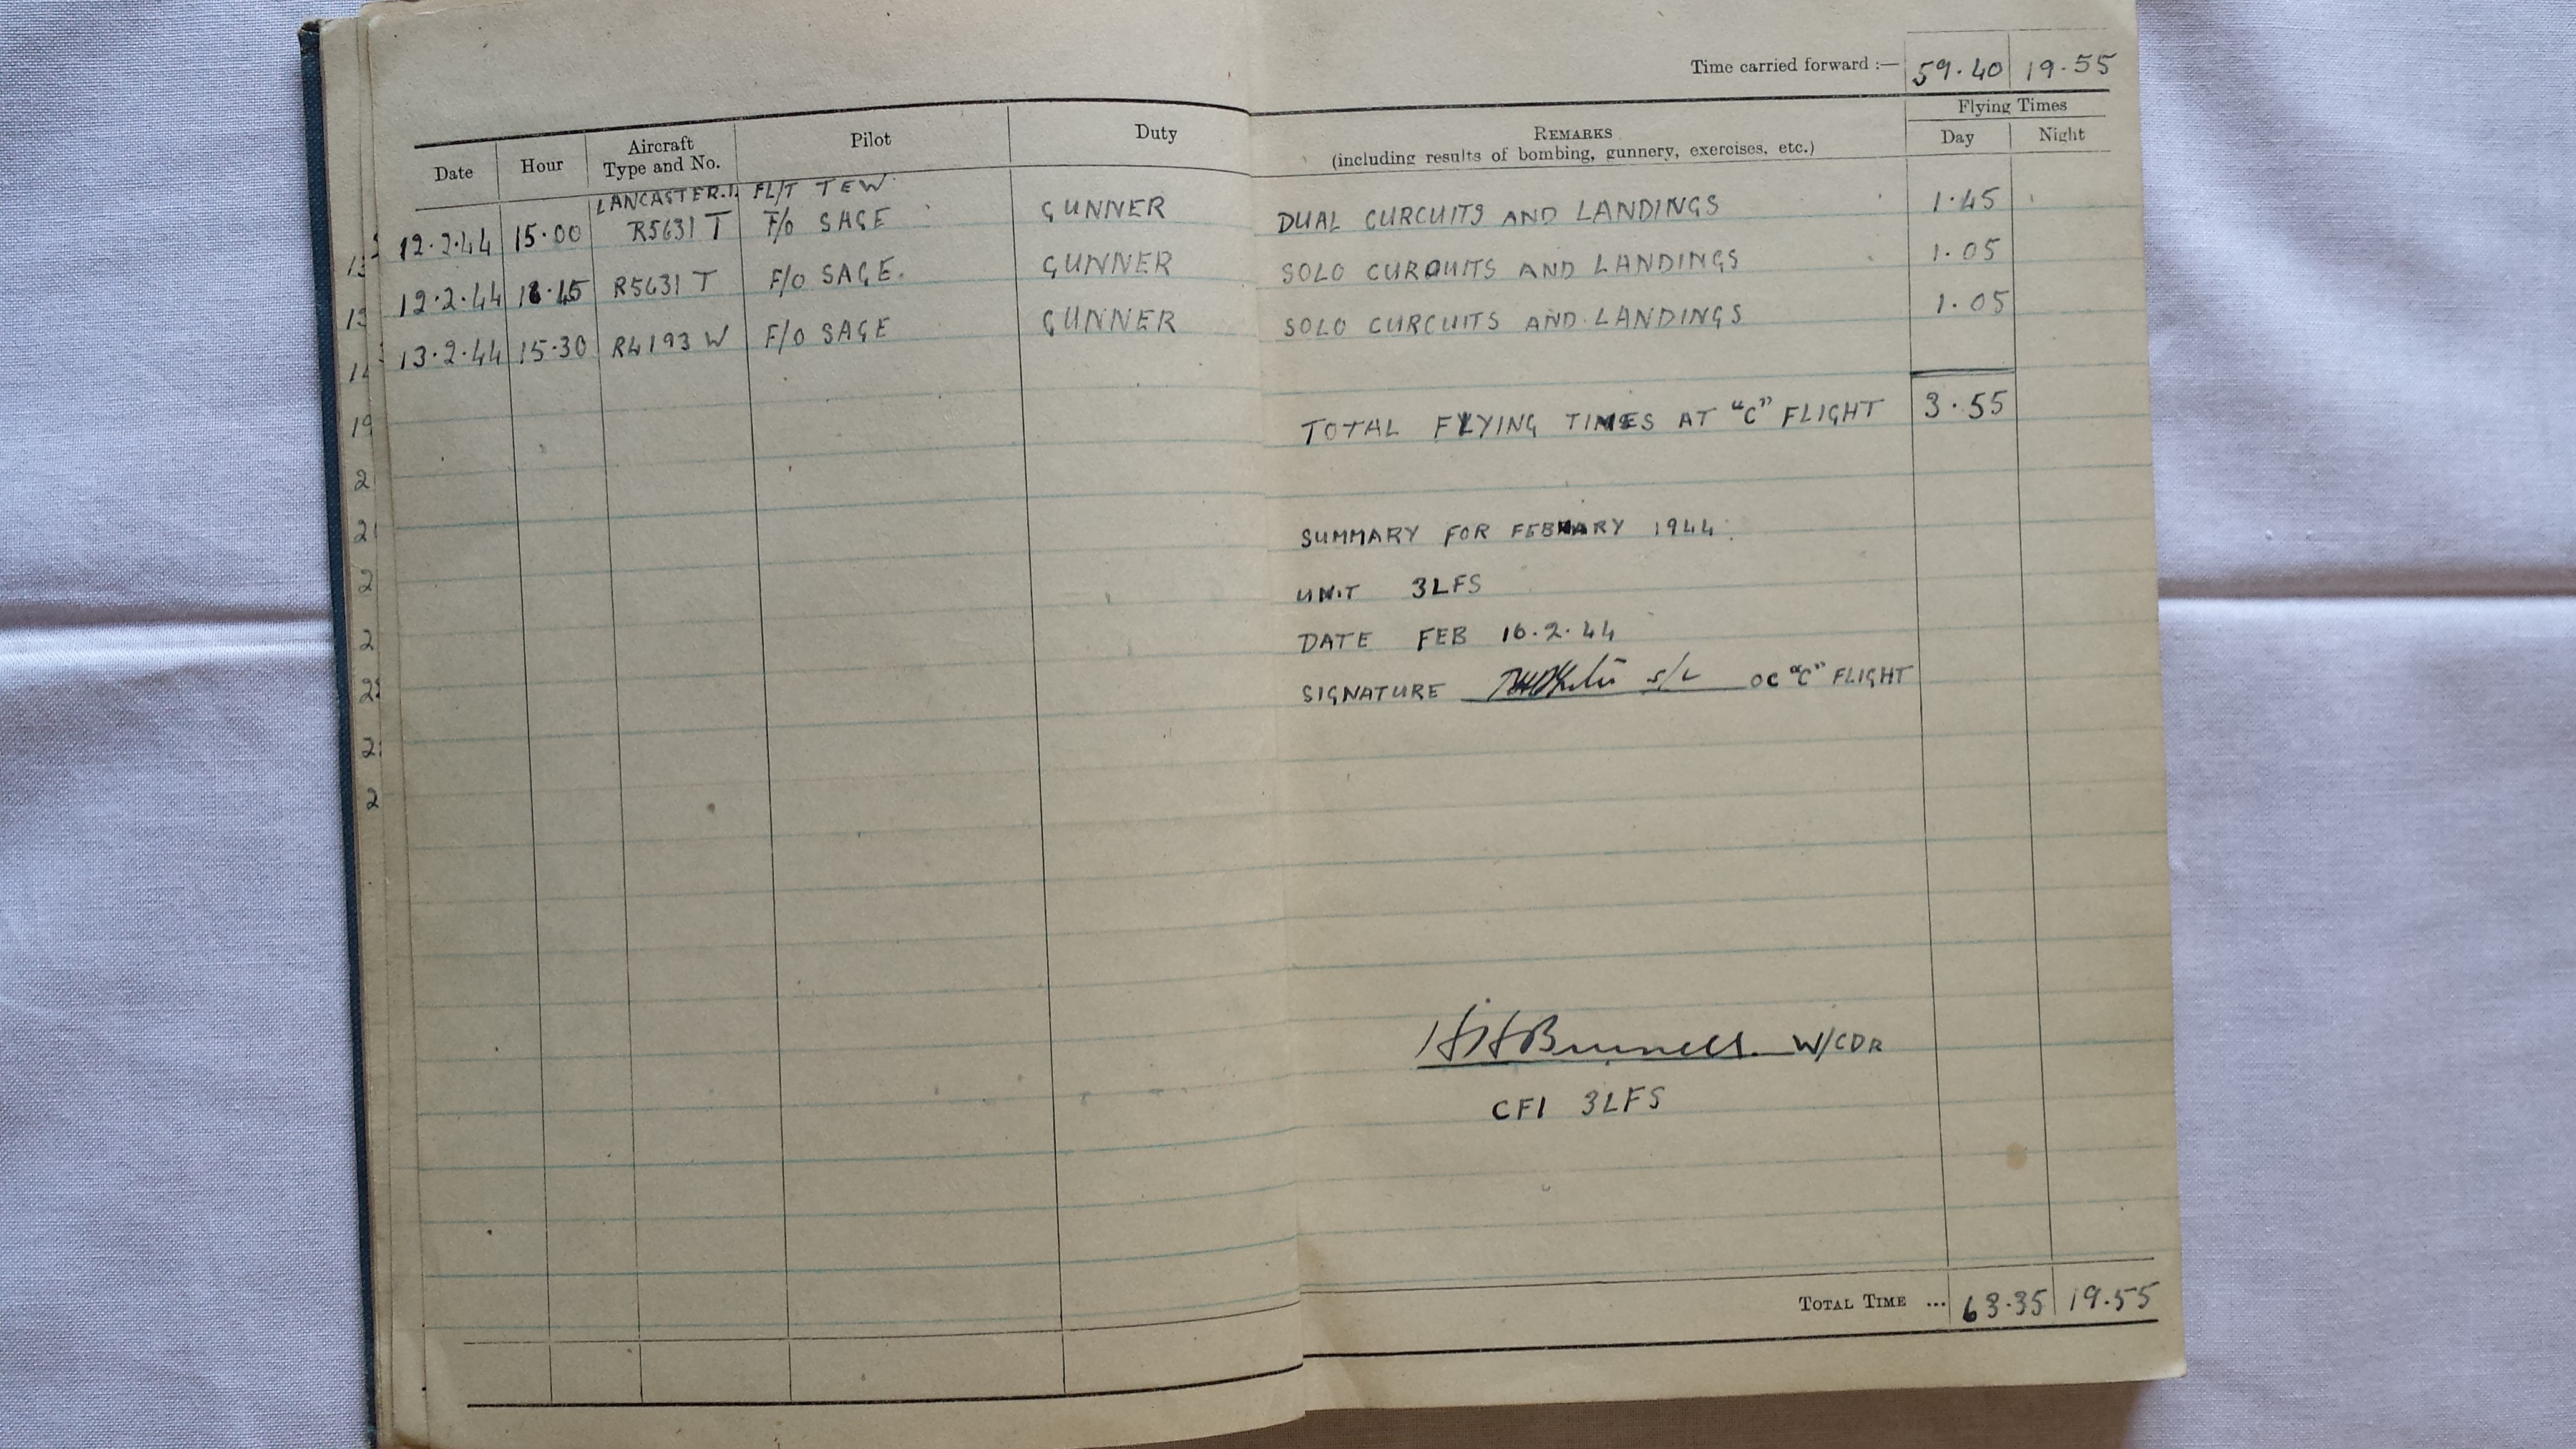 Time carried forward :— 59.40 19.55
Flying Times
Date Hour Aircraft Type and No. Pilot Duty REMARKS (including results of bombing, gunnery, exercises, etc.) Day Night
LANCASTER.I. FL/T TEW
12.2.44 15.00 R5631 T F/O SAGE GUNNER DUAL CURCUITS AND LANDINGS 1.45
12.2.44 18.45 R5631 T F/O SAGE. GUNNER SOLO CURCUITS AND LANDINGS 1.05
13.2.44 15.30 R4193 W F/O SAGE GUNNER SOLO CURCUITS AND LANDINGS 1.05
TOTAL FLYING TIMES AT "C" FLIGHT 3.55
SUMMARY FOR FEBRUARY 1944.
UNIT 3LFS
DATE FEB 16.2.44
SIGNATURE S/L OC "C" FLIGHT
W/CDR
CFI 3LFS
TOTAL TIME ... 63.35 19.55